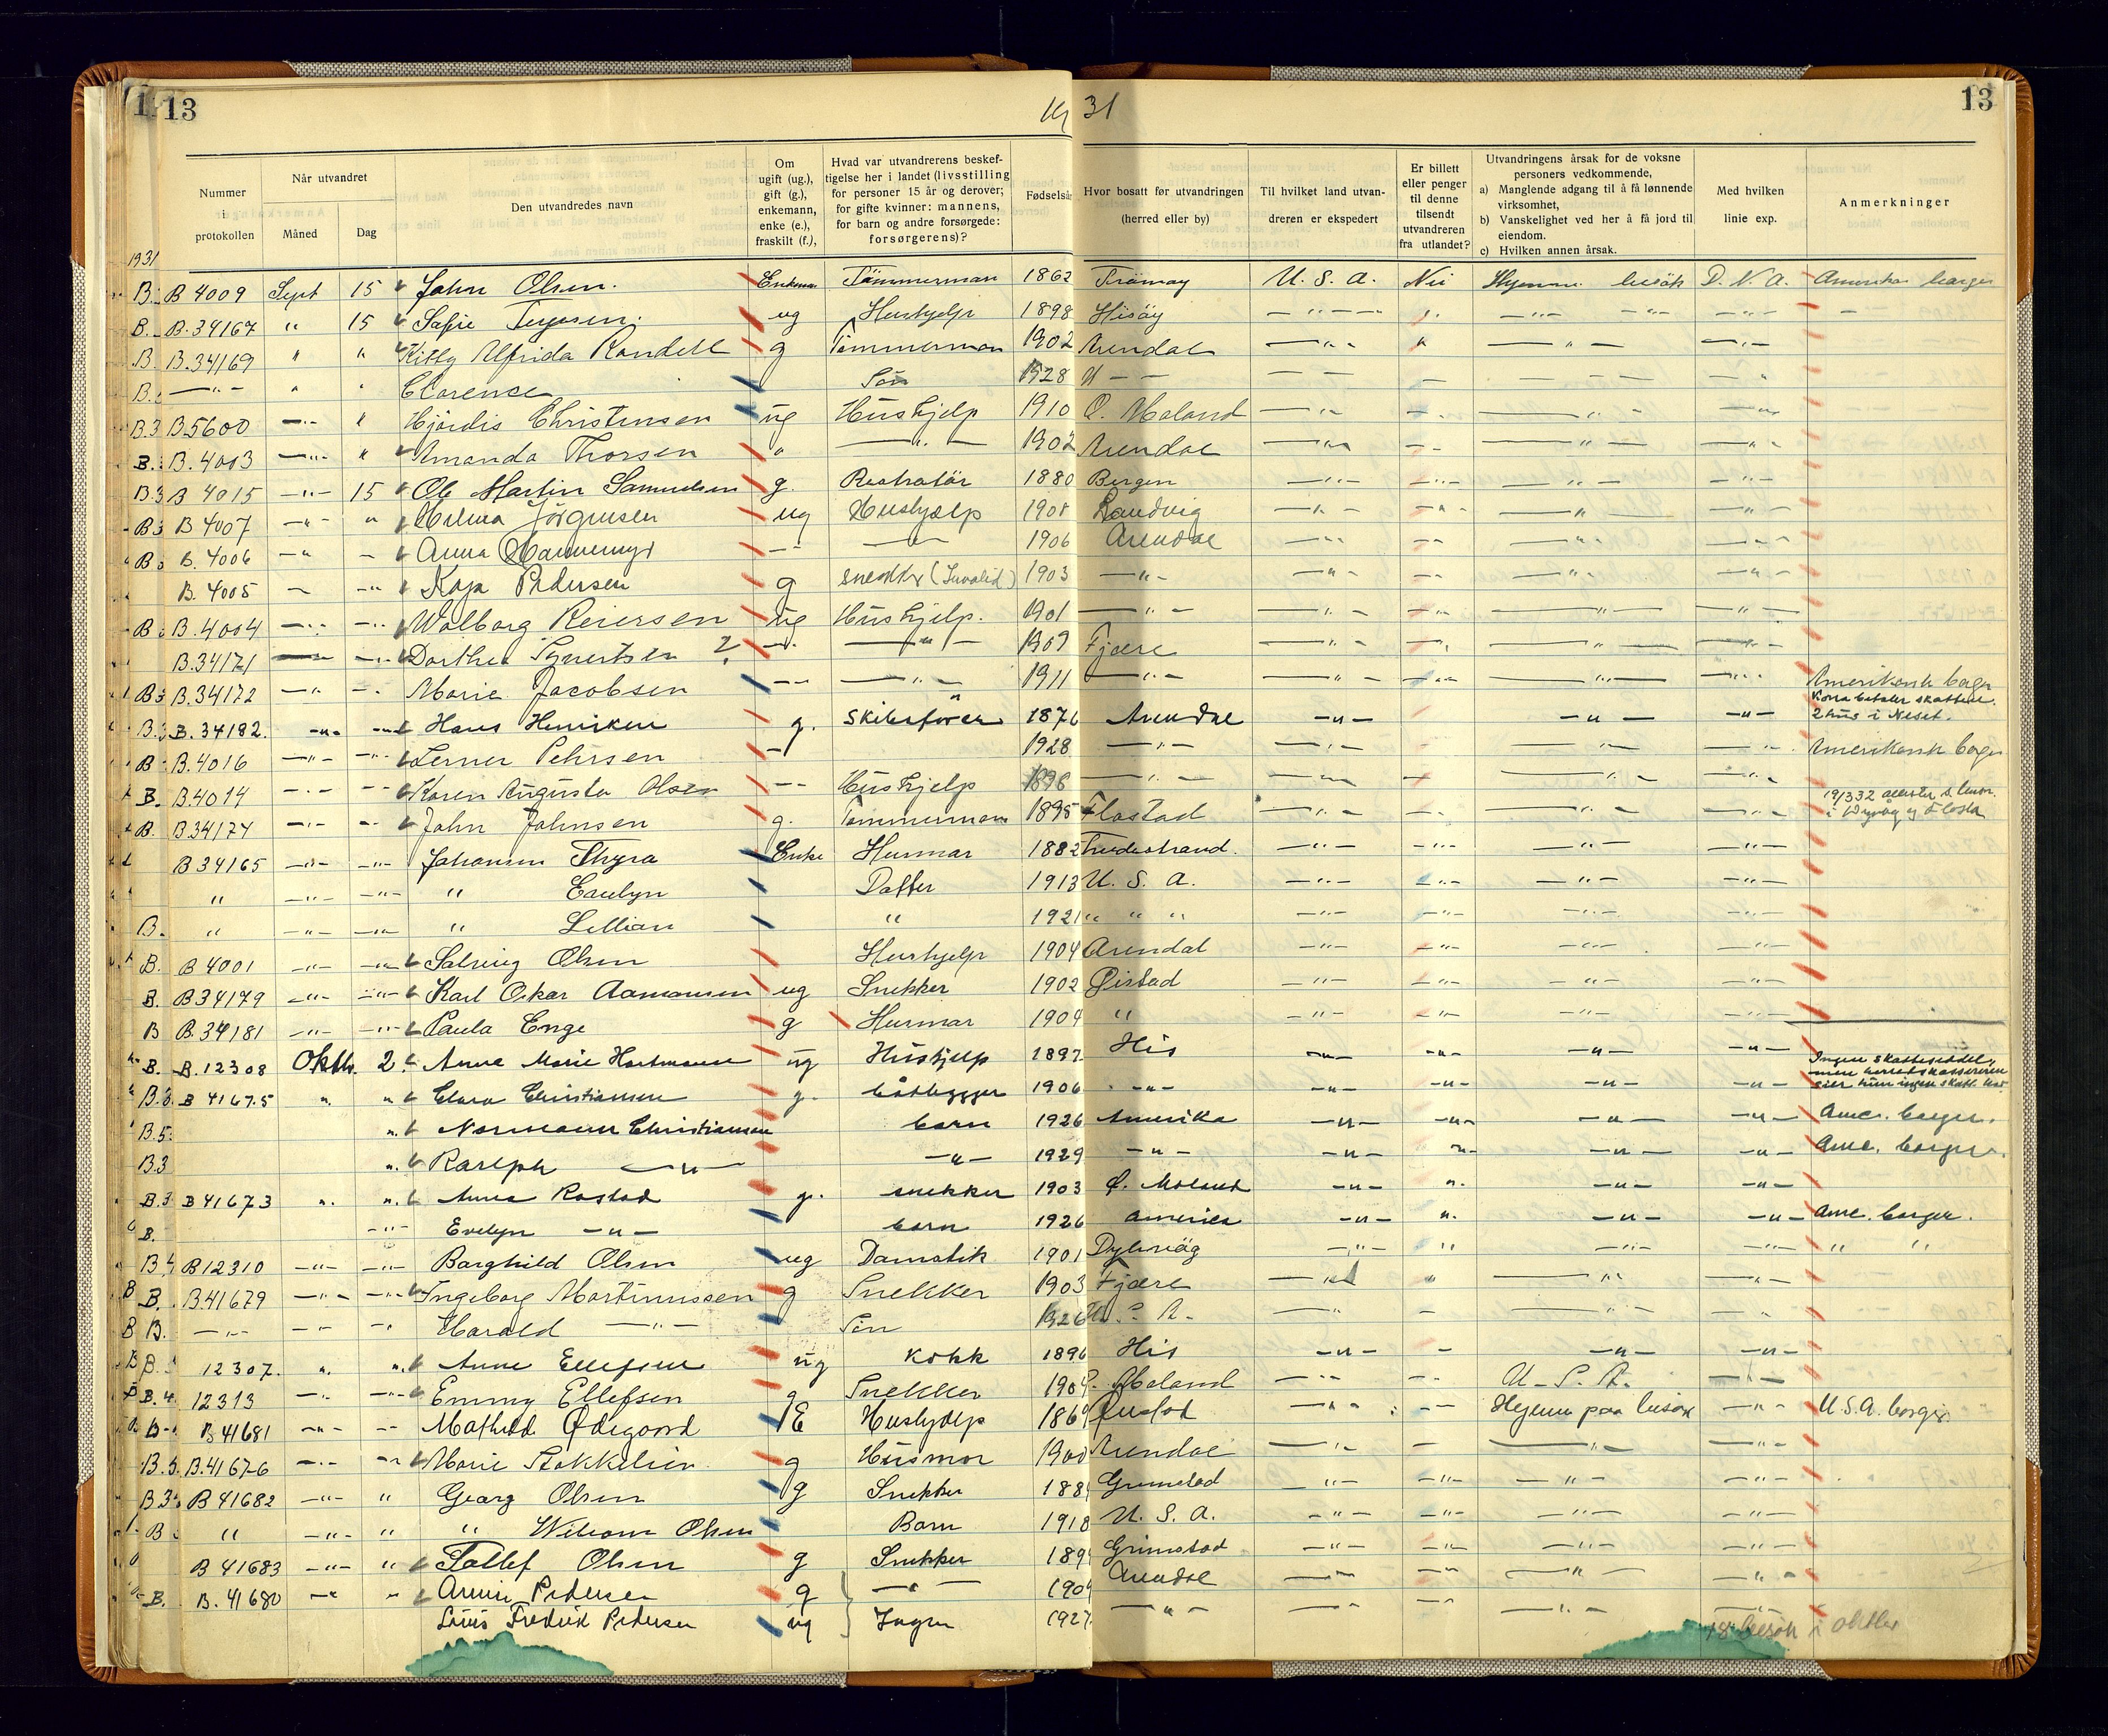 13
19 31
13
Nummer i protokollen
Når utvandret
Måned
Dag
Den utvandredes navn
Om ugift (ug.), gift (g.), enkemann, enke (e.), fraskilt (f.),
Hvad var utvandrerens beskeftigelse her i landet (livsstilling for personer 15 år og derover; for gifte kvinner: mannens, for barn og andre forsørgede: forsørgerens)?
Fødselså
Hvor bosatt før utvandringen (herred eller by)
Til hvilket land utvandreren er ekspedert
Er billett eller penger til denne tilsendt utvandreren fra utlandet?
Utvandringens årsak for de voksne personers vedkommende,
a) Manglende adgang til å få lønnende virksomhet,
b) Vanskelighet ved her å få jord til eiendom.
c) Hvilken annen årsak.
Med hvilken linie exp.
Anmerkninger
1931
B. B 4009 Sept 15 John Olsen. Enkem Tömmerman 1862 Tromøy U. S. A. Nei Hjemme besök D. N. A. Amerika borger
B. B.34167 " 15 Sofie Terjesen. ug Hushjelp 1898 Hisöy -"- -"- -"- -"-
B. B.34169 " " Kitty Alfrida Randell g Tömmerman 1902 Arendal -"- " -"- -"-
B. -"- " " Clarence Sön 1928 U - -
B.3 B.5600 -"- " Hjördis Christensen ug Hushjelp 1910 Ö. Moland -"- -"- -"- -"-
B. B.4003 -"- " Amanda Thorsen " -"- 1902 Arendal -"- -"- -"- -"-
B.3 B 4015 -"- 15 Ole Martin Samuelsen g. Restratör 1880 Bergen -"- -"- -"- -"-
B3 B 4007 -"- " Helma Jörgensen ug Hushjelp 1908 Landvig -"- -"- -"- -"-
B B. 4006 -"- - Anna Hammemyr -"- -"- 1906 Arendal -"- -"- -"- -"-
B. 4005 - -"- Kaja Pedersen g snedker (Invalid) 1903 -"- -"- -"- -"- -"-
B. B.4004 -"- -"- Walborg Reiersen ug Hushjelp. 1901 -"- -"- -"- -"- -"-
B.34171 -"- -"- Dorthea Syvertsen ? -"- -"- 1909 Fjære -"- -"- -"- -"-
B3 B.34172 -"- -"- Marie Jacobsen -"- -"- 1911 -"- -"- -"- -"- -"- Amerikansk borger
B.3 B.34182. -"- -"- Hans Henriksen g. Skibsförer 1876 Arendal -"- -"- -"- Kona betaler skatten. 2 hus i Neset.
B B.4016 -"- -"- Lerner Pehrsen - 1928 -"- -"- -"- -"- Amerikansk borger
B. B.4014 -"- -"- Karen Augusta Olsen -"- Hushjelp 1898 -"- -"- - -"- -"-
B. B34174 -"- -"- John Johnsen g. Tömmerman 1895 Flostad -"- -"- -"- -"-
B 34165 -"- -"- Johansen Thyra Enke Husmor 1882 Tvedestrand. -"- -"- -"- -"-
" -"- -"- " Evelyn Datter 1913 U. S. A. -"- -"- -"- -"-
B. " -"- -"- " Lillian " 1921 " " " -"- -"- -"- -"-
B. B 4001 -"- -"- Solveig Olsen Hushjelp 1904 Arendal -"- -"- -"- -"-
B. B34179 -"- -"- Karl Oskar Aamansen ug Snekker 1902 Øistad -"- -"- -"- -"-
B B.34181 -"- -"- Paula Enge g Husmor 1904 " -"- -"- -"- -"-
B. B.12308 Oktb. 2. Anne Marie Hartmann ug Hushjelp 1897 His -"- -"- -"- -"-
B.3. B 41675 " " Clara Christiansen g. båtbygger 1906 -"- -"- -"- -"- -"- Ingen skatteseddel,
B.5 " Normann Christiansen barn 1926 Amerika -"- -"- -"- -"- Amer. borger.
B.3 " Ralph -"- -"- 1929 -"- -"- -"- -"- -"- Ame. borger.
B.3 B 41673 " " Anna Rostad g. snekker 1903 Ø. Moland -"- " -"- -"-
B. -"- Evelyn -"- barn 1926 America -"- " -"- -"- Ame. borger.
B4 B12310 -"- -"- Borghild Olsen ug Damstik 1901 Dybvåg -"- " -"- -"- " "
B. B.41679 -"- -"- Ingeborg Martinussen g Snekker 1903 Fjære -"- " -"- -"-
B B. -"- -"- - Harald -"- Sön 1926 U. S. A. -"- - -"- -"-
B. 12307. " " Anne Ellefsen ug Kokk 1896 His -"- - -"- -"-
B.4. 12313 -"- -"- Emmy Ellefsen g Snekker 190 Ø. Moland -"- -"- U. S. A. -"-
B- B 41681 -"- -"- Mathild Ødegaard E Hushjelp 186 -"- -"- Hjemme paa besök -"- U.S.A. borger.
B.3. B.41676 -"- -"- Marie Stokkelien g Husmor 1900 Arendal -"- - -"- -"-
B3 B 41682 -"- " Georg Olsen g Snekker 188 Grimstad -"- -"- -"- -"-
B " -"- " " William Olsen Barn 1918 U. S. A. -"- -"- -"- -"-
B 41683 -"- " Tallef Olsen g Snekker 189 Grimstad -"- -"- -"- -"-
B. B. 41680 -"- " Annie Pedersen g -"- 190 Arendal -"- -"- -"- -"-
Louis Fredrik Pedersen ug Ingen 1927 -"- -"- -"- -"- -"-
18 besök i oktbr